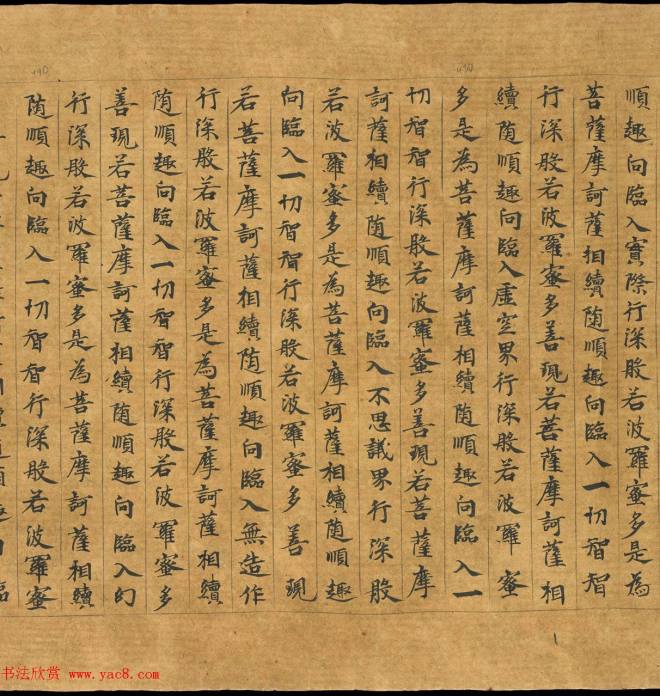 順趣向臨入實際行深般若波羅蜜多是為
菩薩摩訶薩相續随順趣向臨入一切智智
行深般若波羅蜜多善現若菩薩摩訶薩相
續随順趣向臨入虛空界行深般若波羅蜜
多是為菩薩摩訶薩相續随順趣向臨入一
切智智行深般若波羅蜜多善現若菩薩摩
訶薩相續随順趣向臨入不思議界行深般
若波羅蜜多是為菩薩摩訶薩相續随順趣
向臨入一切智智行深般若波羅蜜多善現
若菩薩摩訶薩相續随順趣向臨入無造作
行深般若波羅蜜多是為菩薩摩訶薩相續
随順趣向臨入一切智智行深般若波羅蜜多
善現若菩薩摩訶薩相續随順趣向臨入幻
行深般若波羅蜜多是為菩薩摩訶薩相續
随順趣向臨入一切智智行深般若波羅蜜
书法欣赏 www.yac8.com